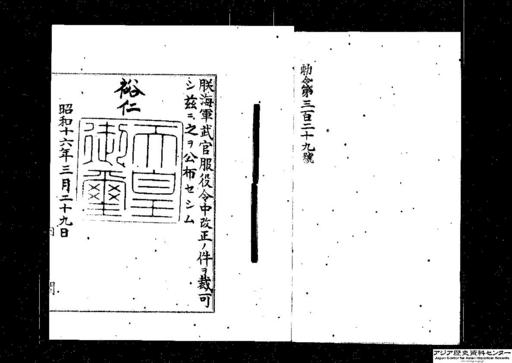 勅令第三百二十九號
朕海軍武官服役令中改正ノ件ヲ裁可
シ茲ニ之ヲ公布セシム
裕仁
天皇御璽
昭和十六年三月二十九日
内閣
アジア歴史資料センター
Japan Center for Asian Historical Records